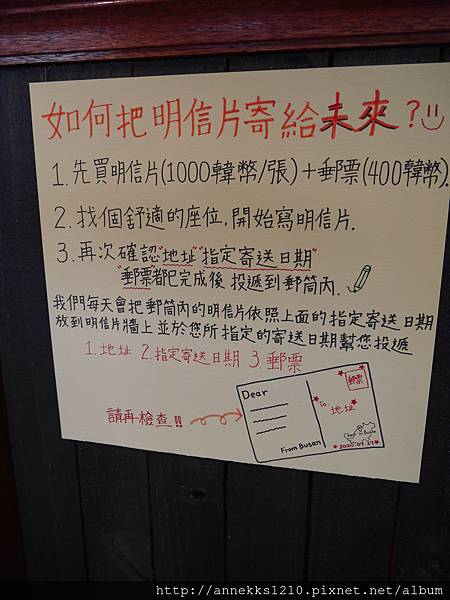 如何把明信片寄給未來？
1. 先買明信片(1000韓幣/張)＋郵票(400韓幣).
2. 找個舒適的座位,開始寫明信片.
3. 再次確認"地址""指定寄送日期"
"郵票都已完成後 投遞到郵筒內.
我們每天會把郵筒內的明信片依照上面的指定寄送日期
放到明信片牆上並於您所指定的寄送日期幫您投遞
1.地址 2.指定寄送日期 3.郵票
請再檢查!!
Dear
From Busan
郵票
To.
地址
http://annekks1210.pixnet.net/album